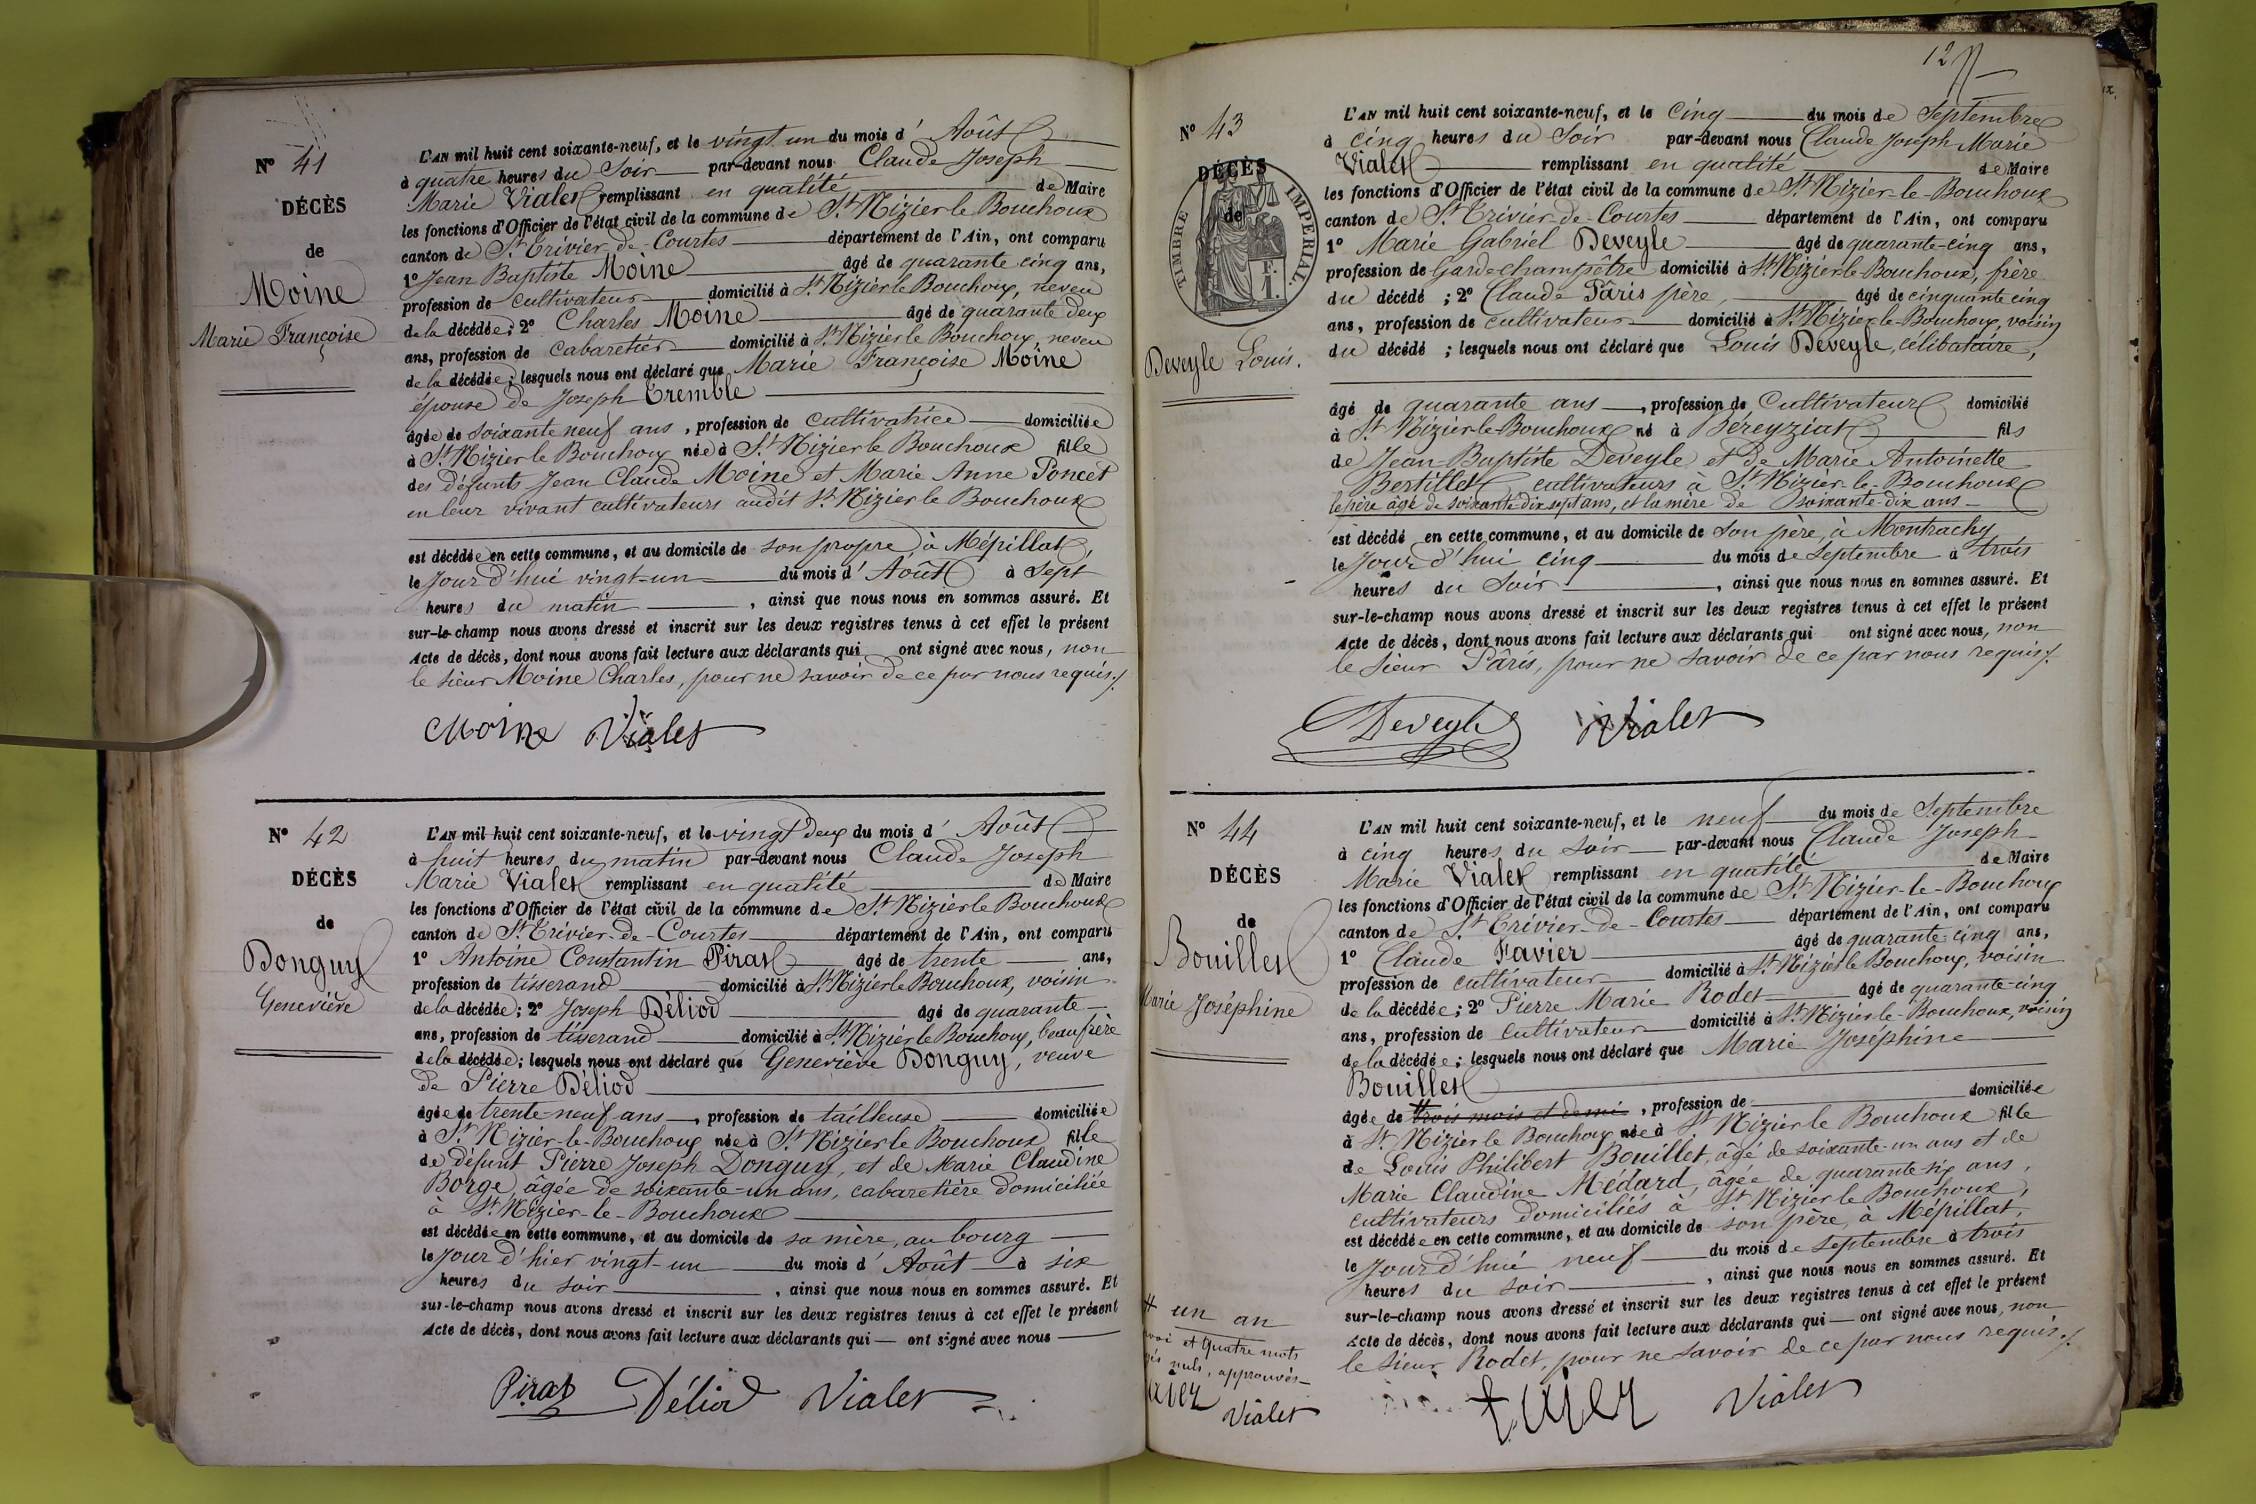 N° 41
DÉCÈS
de
Moine
Marie Françoise
L'AN mil huit cent soixante-neuf, et le vingt un du mois d' Août
à quatre heures du Soir par-devant nous Claude Joseph
Marie Vialet remplissant en qualité de Maire
les fonctions d'Officier de l'état civil de la commune de St Nizier le Bouchoux
canton de St Trivier-de-Courtes département de l'Ain, ont comparu
1° Jean Baptiste Moine âgé de quarante cinq ans,
profession de cultivateur domicilié à St Nizier le Bouchoux, neveu
de la décédée; 2° Charles Moine âgé de quarante deux
ans, profession de cabaretier domicilié à St Nizier le Bouchoux, neveu
de la décédée; lesquels nous ont déclaré que Marie Françoise Moine
épouse de Joseph Tremble
âgée de soixante neuf ans, profession de cultivatrice domiciliée
à St Nizier le Bouchoux née à St Nizier le Bouchoux fille
des défunts Jean Claude Moine et Marie Anne Poncet
en leur vivant cultivateurs audit St Nizier le Bouchoux
est décédée en cette commune, et au domicile de son propre à Mépillat,
le Jour d'hui vingt-un du mois d' Août à Sept
heures du matin, ainsi que nous nous en sommes assuré. Et
sur-le-champ nous avons dressé et inscrit sur les deux registres tenus à cet effet le présent
Acte de décès, dont nous avons fait lecture aux déclarants qui ont signé avec nous, non
le sieur Moine Charles, pour ne savoir de ce par nous requis./.
Moine Vialet
N° 42
DÉCÈS
de
Donguy
Geneviève
L'AN mil huit cent soixante-neuf, et le vingt deux du mois d' Août
à huit heures du matin par-devant nous Claude Joseph
Marie Vialet remplissant en qualité de Maire
les fonctions d'Officier de l'état civil de la commune de St Nizier le Bouchoux
canton de St Trivier-de-Courtes département de l'Ain, ont comparu
1° Antoine Constantin Pirat âgé de trente ans,
profession de tisserand domicilié à St Nizier le Bouchoux, voisin
de la décédée; 2° Joseph Déliod âgé de quarante
ans, profession de tisserand domicilié à St Nizier le Bouchoux, beau frère
de la décédée; lesquels nous ont déclaré que Geneviève Donguy, veuve
de Pierre Déliod
âgée de trente-neuf ans, profession de tailleuse domiciliée
à St Nizier-le-Bouchoux née à St Nizier le Bouchoux fille
de défunt Pierre Joseph Donguy, et de Marie Claudine
Borge, âgée de soixante-un ans, cabaretière domiciliée
à St Nizier-le-Bouchoux
est décédée en cette commune, et au domicile de sa mère, au bourg
le Jour d'hier vingt-un du mois d' Août à six
heures du soir, ainsi que nous nous en sommes assuré. Et
sur-le-champ nous avons dressé et inscrit sur les deux registres tenus à cet effet le présent
Acte de décès, dont nous avons fait lecture aux déclarants qui ont signé avec nous
Pirat Déliod Vialet
N° 43
DÉCÈS
de
TIMBRE IMPERIAL.
F.
1.
Deveyle Louis.
L'AN mil huit cent soixante-neuf, et le cinq du mois de Septembre
à cinq heures du Soir par-devant nous Claude Joseph Marie
Vialet remplissant en qualité de Maire
les fonctions d'Officier de l'état civil de la commune de St Nizier-le-Bouchoux
canton de St Trivier-de-Courtes département de l'Ain, ont comparu
1° Marie Gabriel Deveyle âgé de quarante-cinq ans,
profession de Garde champêtre domicilié à St Nizier-le-Bouchoux, frère
du décédé; 2° Claude Pâris père, âgé de cinquante cinq
ans, profession de cultivateur domicilié à St Nizier-le-Bouchoux, voisin
du décédé; lesquels nous ont déclaré que Louis Deveyle, célibataire,
âgé de quarante ans, profession de Cultivateur domicilié
à St Nizier-le-Bouchoux né à Béreyziat fils
de Jean-Baptiste Deveyle et de Marie Antoinette
Bertillet cultivateurs à St Nizier-le-Bouchoux
le père âgé de soixante-dix sept ans, et la mère de soixante-dix ans
est décédé en cette commune, et au domicile de son père, à Montrachy
le Jour d'hui cinq du mois de Septembre à trois
heures du Soir, ainsi que nous nous en sommes assuré. Et
sur-le-champ nous avons dressé et inscrit sur les deux registres tenus à cet effet le présent
Acte de décès, dont nous avons fait lecture aux déclarants qui ont signé avec nous, non
le sieur Pâris, pour ne savoir de ce par nous requis./.
Deveyle Vialet
N° 44
DÉCÈS
de
Bouillet
Marie Joséphine
L'AN mil huit cent soixante-neuf, et le neuf du mois de Septembre
à cinq heures du soir par-devant nous Claude Joseph
Marie Vialet remplissant en qualité de Maire
les fonctions d'Officier de l'état civil de la commune de St Nizier-le-Bouchoux
canton de St Trivier-de-Courtes département de l'Ain, ont comparu
1° Claude Favier âgé de quarante-cinq ans,
profession de cultivateur domicilié à St Nizier le Bouchoux, voisin
de la décédée; 2° Pierre Marie Rodet âgé de quarante-cinq
ans, profession de cultivateur domicilié à St Nizier-le-Bouchoux, voisin
de la décédée; lesquels nous ont déclaré que Marie Joséphine
Bouillet
âgée de trois mois et demi, profession de domiciliée
à St Nizier le Bouchoux née à St Nizier le Bouchoux fille
de Louis Philibert Bouillet, âgé de soixante-un ans et de
Marie Claudine Médard, âgée de quarante-six ans,
cultivateurs domiciliés à St Nizier le Bouchoux,
est décédée en cette commune, et au domicile de son père, à Mépillat,
le Jour d'hui neuf du mois de Septembre à trois
heures du soir, ainsi que nous nous en sommes assuré. Et
sur-le-champ nous avons dressé et inscrit sur les deux registres tenus à cet effet le présent
Acte de décès, dont nous avons fait lecture aux déclarants qui ont signé avec nous, non
le sieur Rodet, pour ne savoir de ce par nous requis./.
# un an
et quatre mots
nuls, approuvés
Vialet
favier Vialet